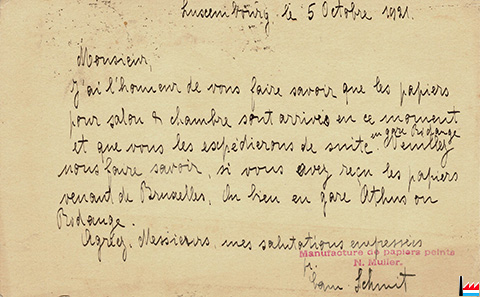 Luxembourg, le 5 Octobre 1921.
Monsieur,
J'ai l'honneur de vous faire savoir que les papiers
pour salon & chambre sont arrivés en ce moment
et que vous les expédierons de suite en gare Rodange
Veuillez
nous faire savoir, si vous avez reçu les papiers
venant de Bruxelles. Ou bien en gare Athus ou
Rodange.
Agréez, Messieurs, mes salutations empressées
Manufacture de papiers peints
N. Muller.
Schmit